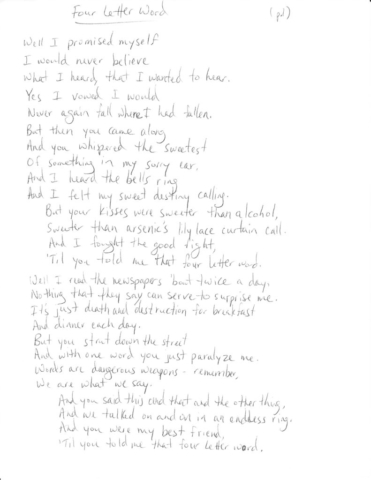 Four Letter Word (p1)
Well I promised myself
I would never believe
What I heard, that I wanted to hear.
Yes I vowed I would
Never again fall where I had fallen.
But then you came along
And you whispered the sweetest
Of something in my ear.
And I heard the bells ring
And I felt my sweet destiny calling.
But your kisses were sweeter than alcohol,
Sweeter than arsenic's lily lace curtain call.
And I fought the good fight,
'Til you told me that four letter word.
Well I read the newspapers 'bout twice a day,
Nothing that they say can serve to surprise me.
It's just death and destruction for breakfast
And dinner each day.
But you strut down the street
And with one word you just paralyze me.
Words are dangerous weapons - remember,
We are what we say.
And you said this and that and the other thing,
And we talked on and on in an endless ring.
And you were my best friend,
'Til you told me that four letter word.